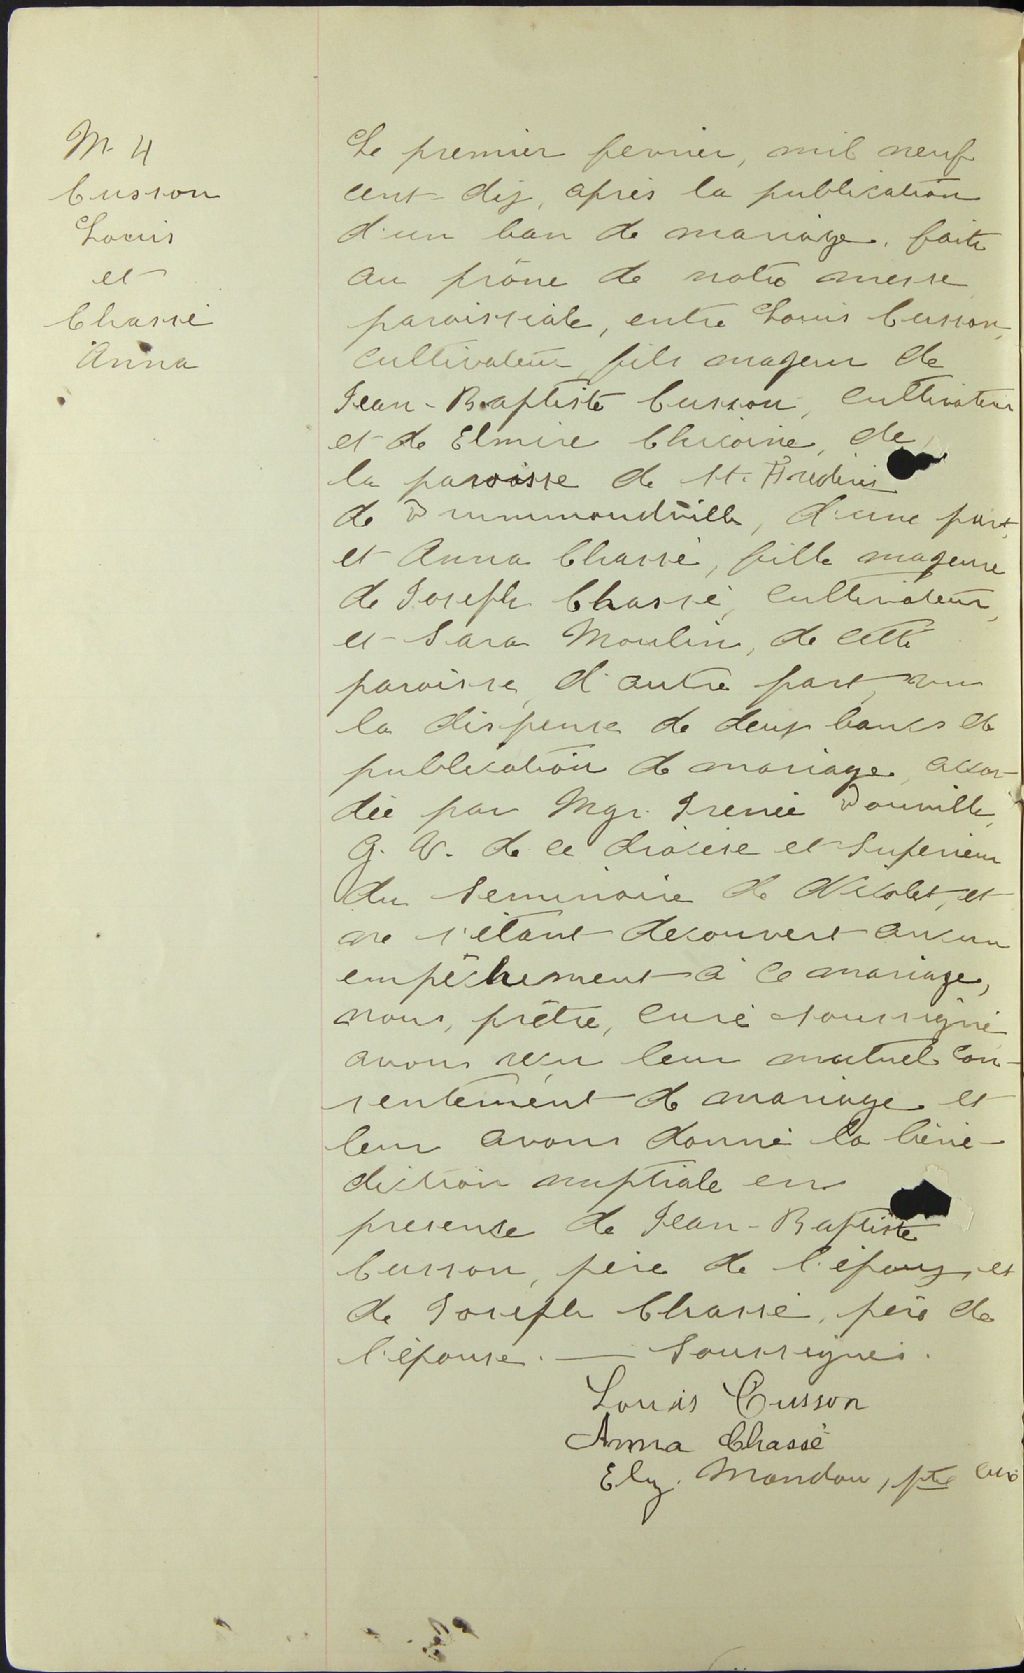 M. 4
Cusson
Louis
et
Chassé
Anna
Le premier fevrier, mil neuf
cent dix, après la publication
d'un ban de mariage, faite
au prône de notre messe
paroissiale, entre Louis Cusson,
cultivateur, fils mageur de
Jean-Baptiste Cusson, cultivateur
et de Elmire Chicoine, de
la paroisse de St. Frederic
de Drummondville, d'une part,
et Anna Chassé, fille mageure
de Joseph Chassé, cultivateur,
et Sara Moulin, de cette
paroisse, d'autre part, vu
la dispense de deux bancs de
publication de mariage, accor-
dée par Mgr. Irenée Douville,
G. V. de ce diocèse et Superieur
du Seminaire de Nicolet, et
ne s'étant decouvert aucun
empêchement à ce mariage,
nous, prêtre, curé soussigné
avons reçu leur mutuel con-
sentement de mariage et
leur avons donné la béné-
diction nuptiale en
presence de Jean-Baptiste
Cusson, père de l'époux, et
de Joseph Chassé, père de
l'épouse. — Soussignés.
Louis Cusson
Anna Chassé
Elz. Mondou, ptre curé